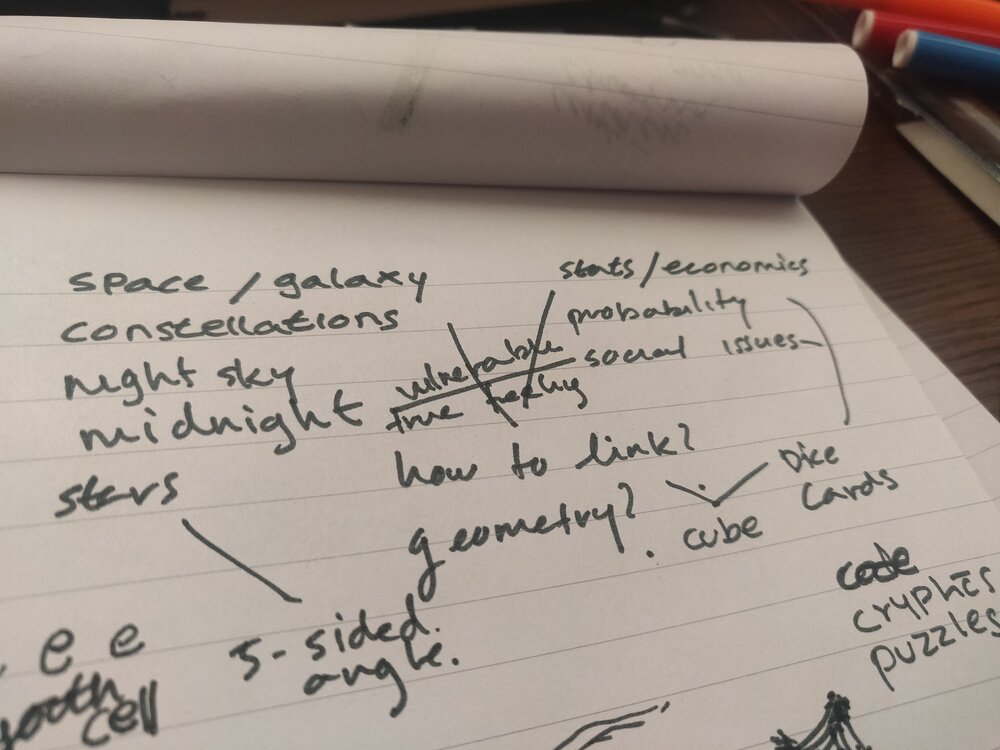 space / galaxy
constellations
night sky
midnight
stars
stats/economics
probability
social issues
vulnerable
true feeling
how to link?
geometry?
cube
Dice
Cards
5-sided.
angle.
code
cryphics
puzzles
e e
cell